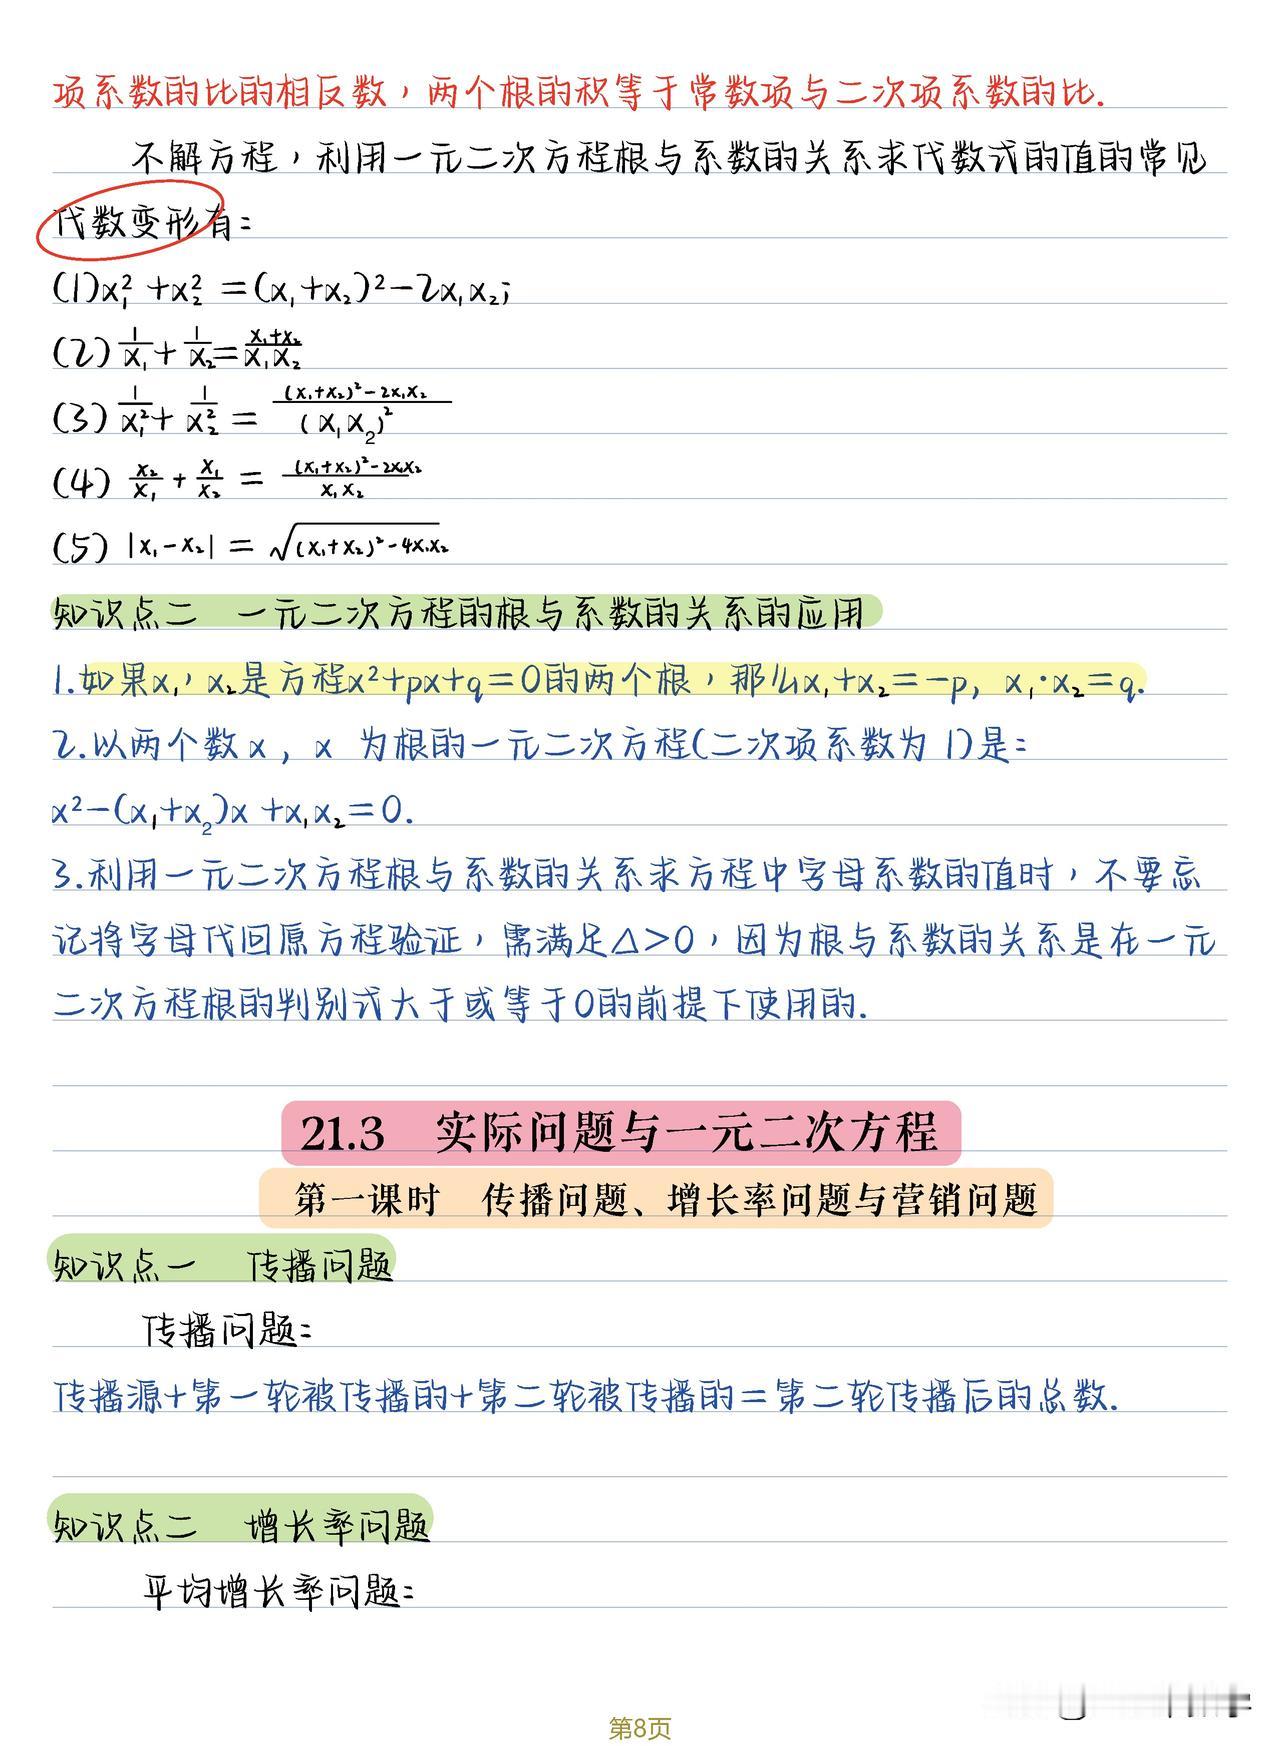 项系数的比的相反数，两个根的积等于常数项与二次项系数的比.
不解方程，利用一元二次方程根与系数的关系求代数式的值的常见
代数变形有：
(1)x₁²+x₂²=(x₁+x₂)²-2x₁x₂;
(2) 1/x₁+1/x₂=(x₁+x₂)/(x₁x₂)
(3) 1/x₁²+1/x₂²=((x₁+x₂)²-2x₁x₂)/(x₁x₂)²
(4) x₂/x₁+x₁/x₂=((x₁+x₂)²-2x₁x₂)/(x₁x₂)
(5) |x₁-x₂|=√((x₁+x₂)²-4x₁x₂)
知识点二 一元二次方程的根与系数的关系的应用
1.如果x₁，x₂是方程x²+px+q=0的两个根，那么x₁+x₂=-p, x₁·x₂=q.
2.以两个数x, x 为根的一元二次方程(二次项系数为1)是：
x²-(x₁+x₂)x+x₁x₂=0.
3.利用一元二次方程根与系数的关系求方程中字母系数的值时，不要忘
记将字母代回原方程验证，需满足△>0，因为根与系数的关系是在一元
二次方程根的判别式大于或等于0的前提下使用的.
21.3 实际问题与一元二次方程
第一课时 传播问题、增长率问题与营销问题
知识点一 传播问题
传播问题：
传播源+第一轮被传播的+第二轮被传播的=第二轮传播后的总数.
知识点二 增长率问题
平均增长率问题：
第8页